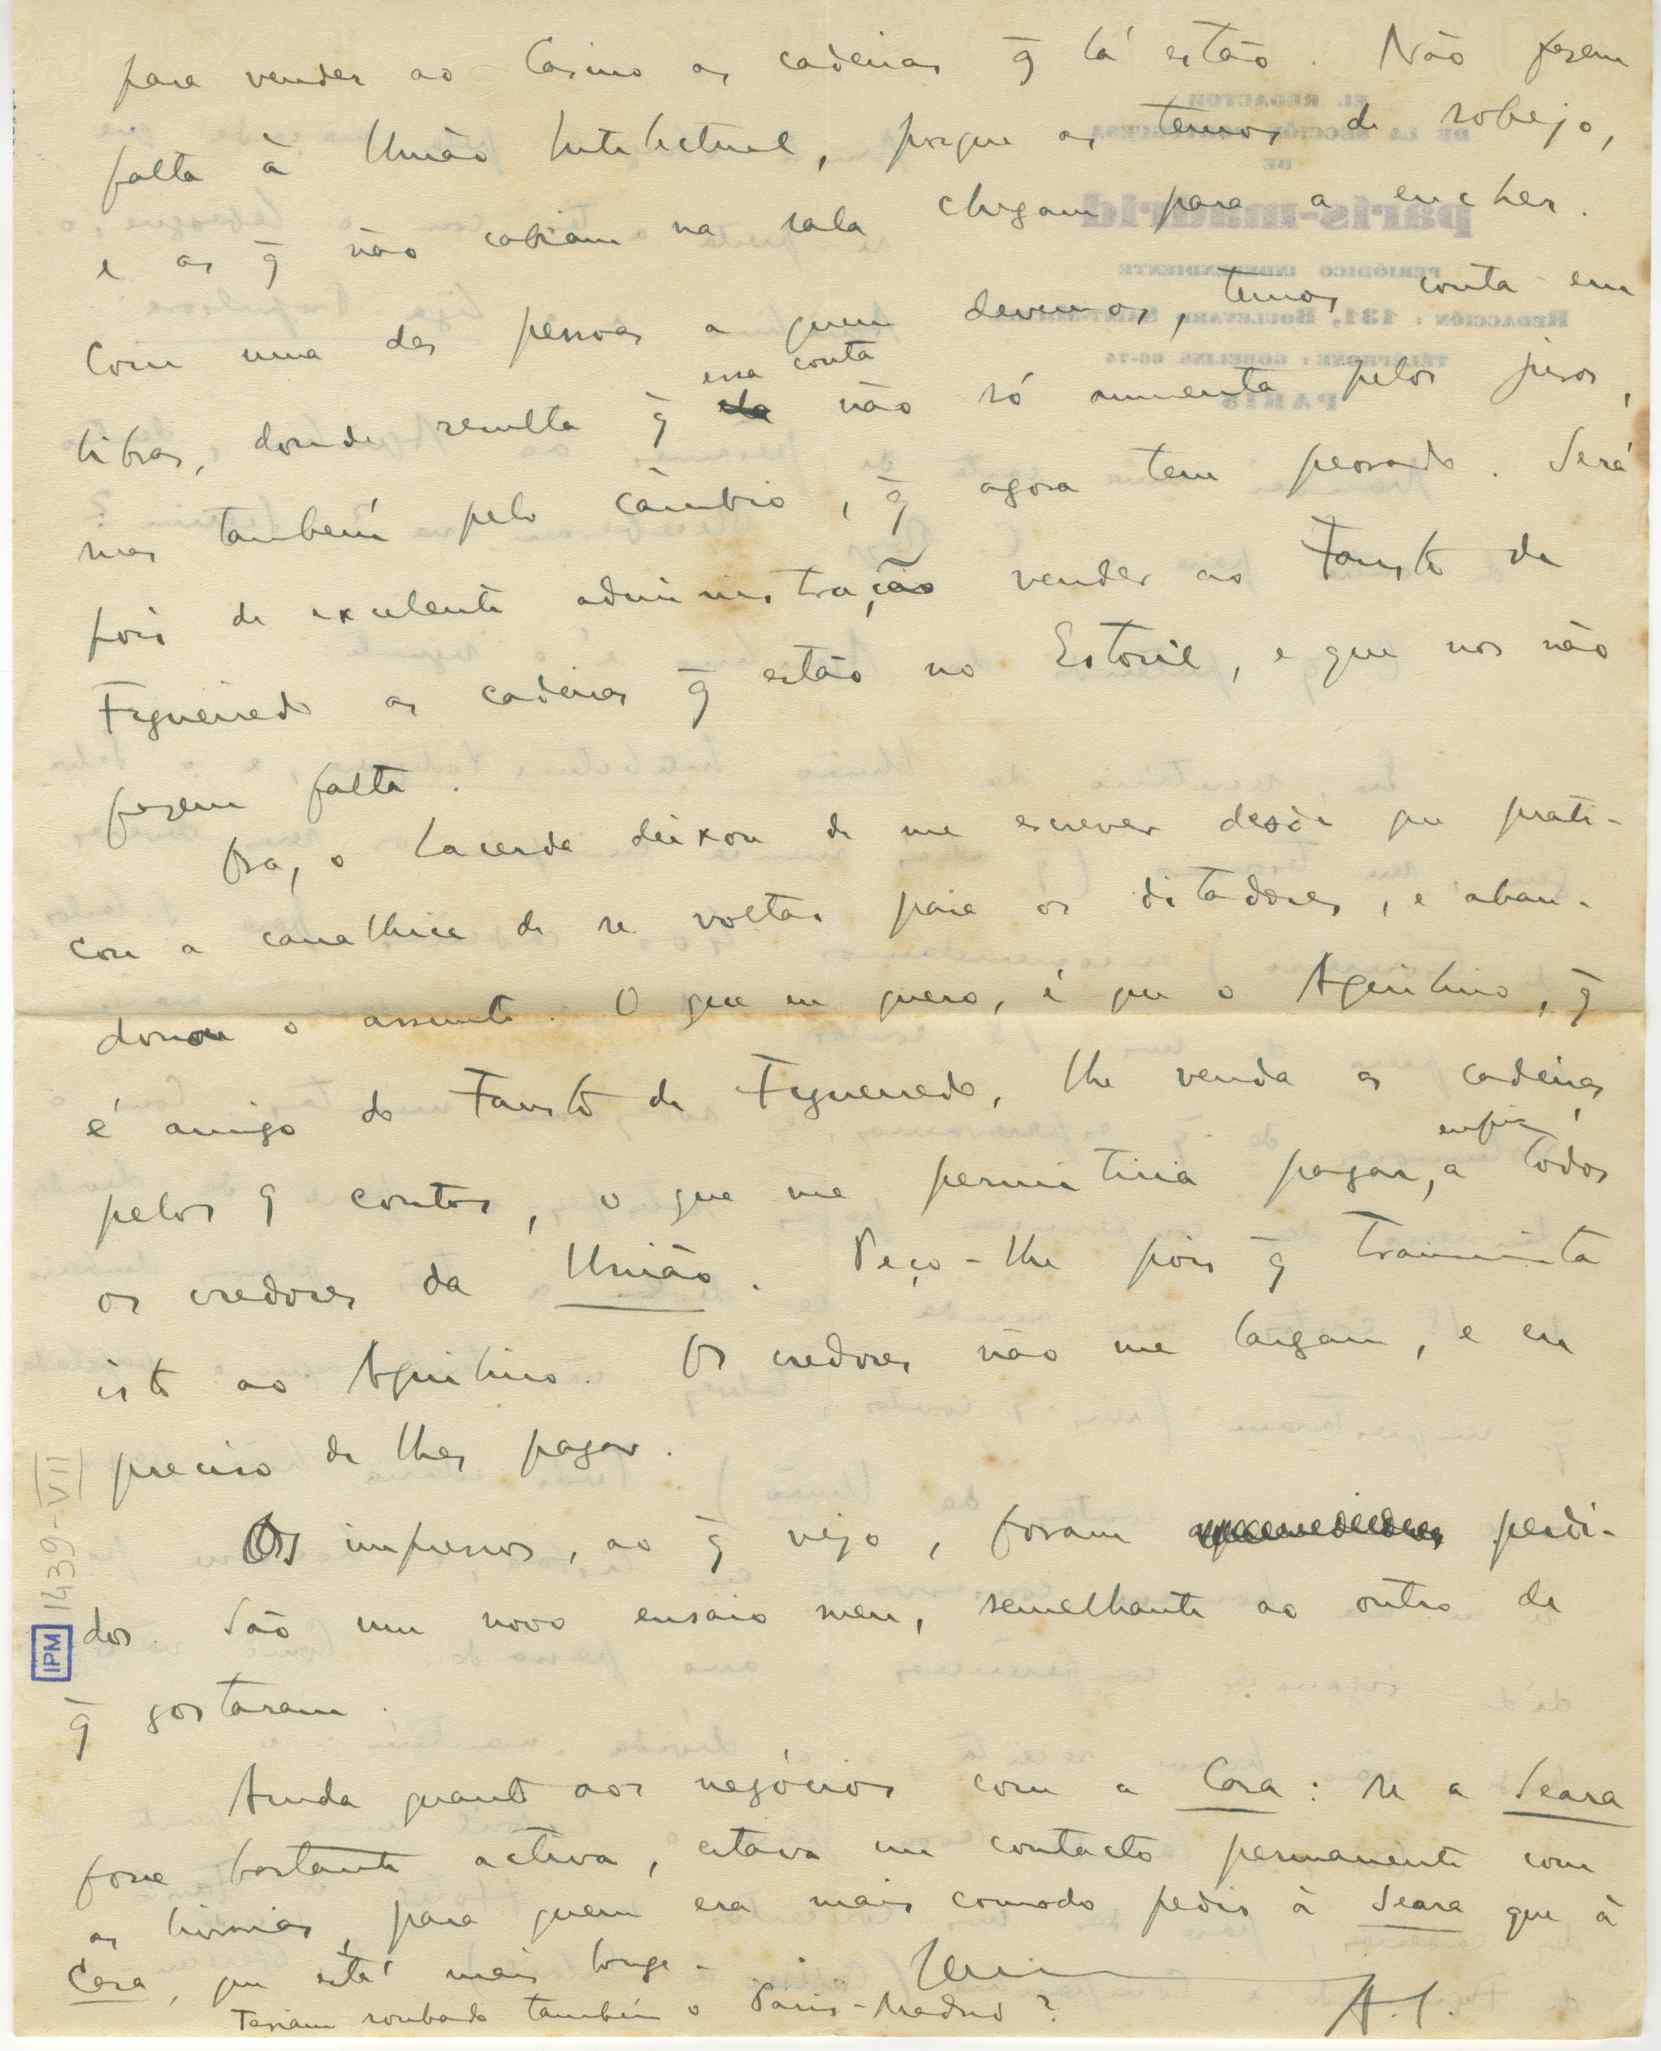 para vender ao Casino as cadeiras q̄ lá estão. Não fazem
falta à União Intelectual, porque as temos de sobejo,
e as q̄ não cabiam na sala chegam para a encher.
Com uma das pessoas a quem devemos, temos conta em
libras, donde resulta q̄ essa conta não só aumenta pelos juros,
mas também pelo câmbio, q̄ agora tem peorado. Será
pois de excelente administração vender ao Fausto de
Figueiredo as cadeiras q̄ estão no Estoril, e que nos não
fazem falta.
Ora, o Lacerda deixou de me escrever desde que prati-
cou a canalhice de se voltar para os ditadores, e aban-
donou o assunto. O que eu quero, é que o Aquilino, q̄
é amigo do Fausto de Figueiredo, lhe venda as cadeiras
pelos 9 contos, o que me permitiria pagar, enfim, a todos
os credores da União. Peço-lhe pois q̄ transmita
isto ao Aquilino. Os credores não me largam, e eu
preciso de lhes pagar.
Os impressos, ao q̄ vejo, foram perdi-
dos. São um novo ensaio meu, semelhante ao outro de
q̄ gostaram.
Ainda quanto aos negócios com a Casa: se a Seara
fosse bastante activa, estava em contacto permanente com
as livrarias, para quem era mais comodo pedir à Seara que à
Casa, que está mais longe.
A. S.
Teriam roubado também o Paris-Madrid?
IPM 1439-VII
EL REDACTOR
DE LA SECCIÓN
DE
paris-madrid
PERIÓDICO INDEPENDIENTE
REDACCIÓN: 131, BOULEVARD SAINT-
TÉLÉPHONE: GOBELINS 66-74
PARIS